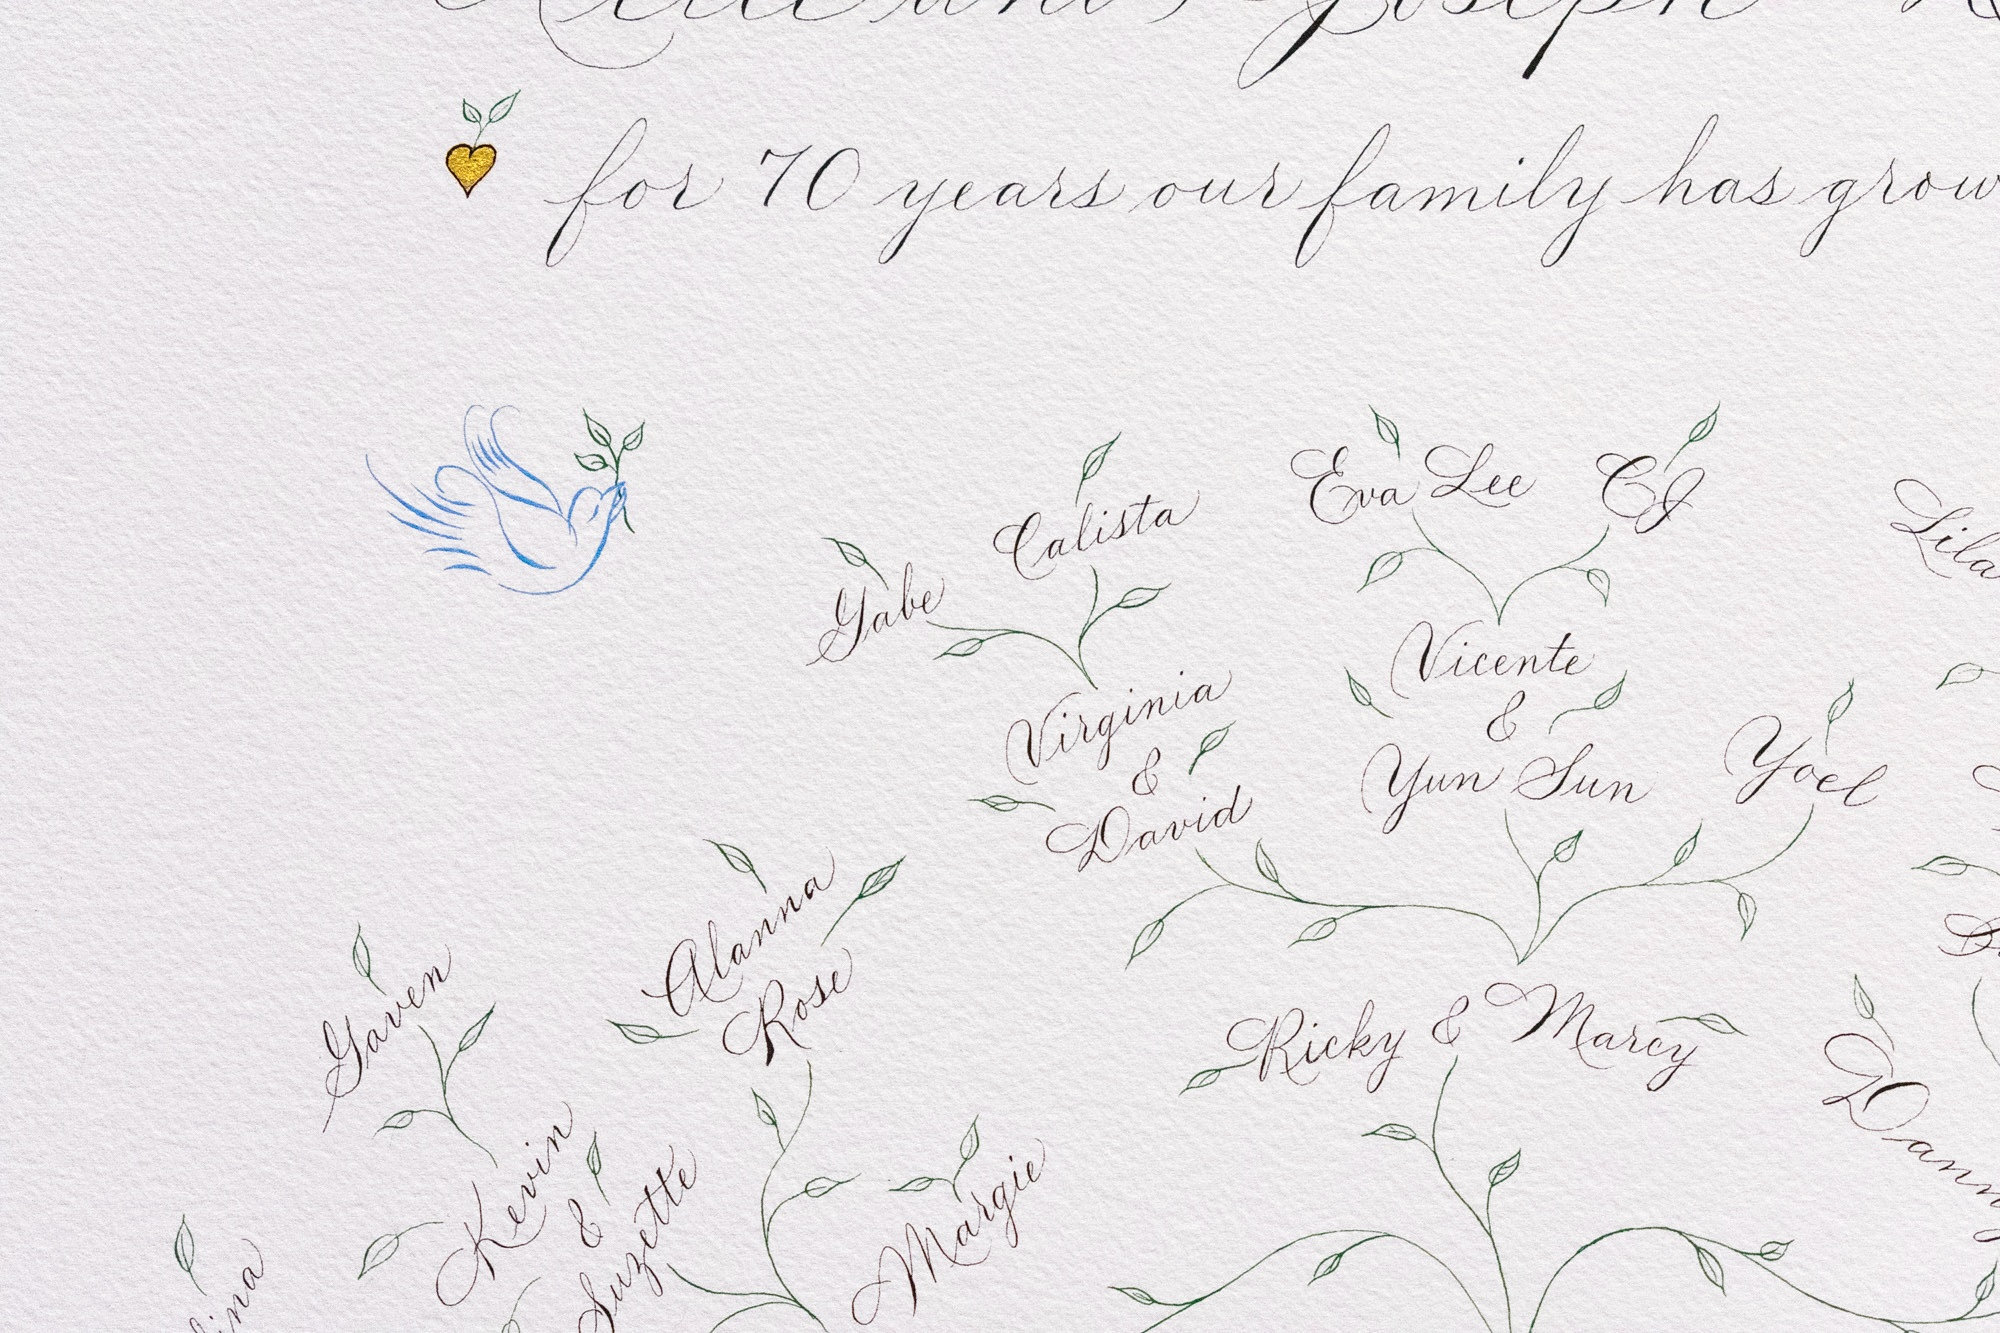 Joseph
for 70 years our family has grow
Eva Lee
CJ
Calista
Gabe
Lila
Vicente
&
Yun Sun
Virginia
&
David
Yoel
Alanna
Rose
Gaven
Ricky & Marcy
Kevin
&
Suzette
Margie